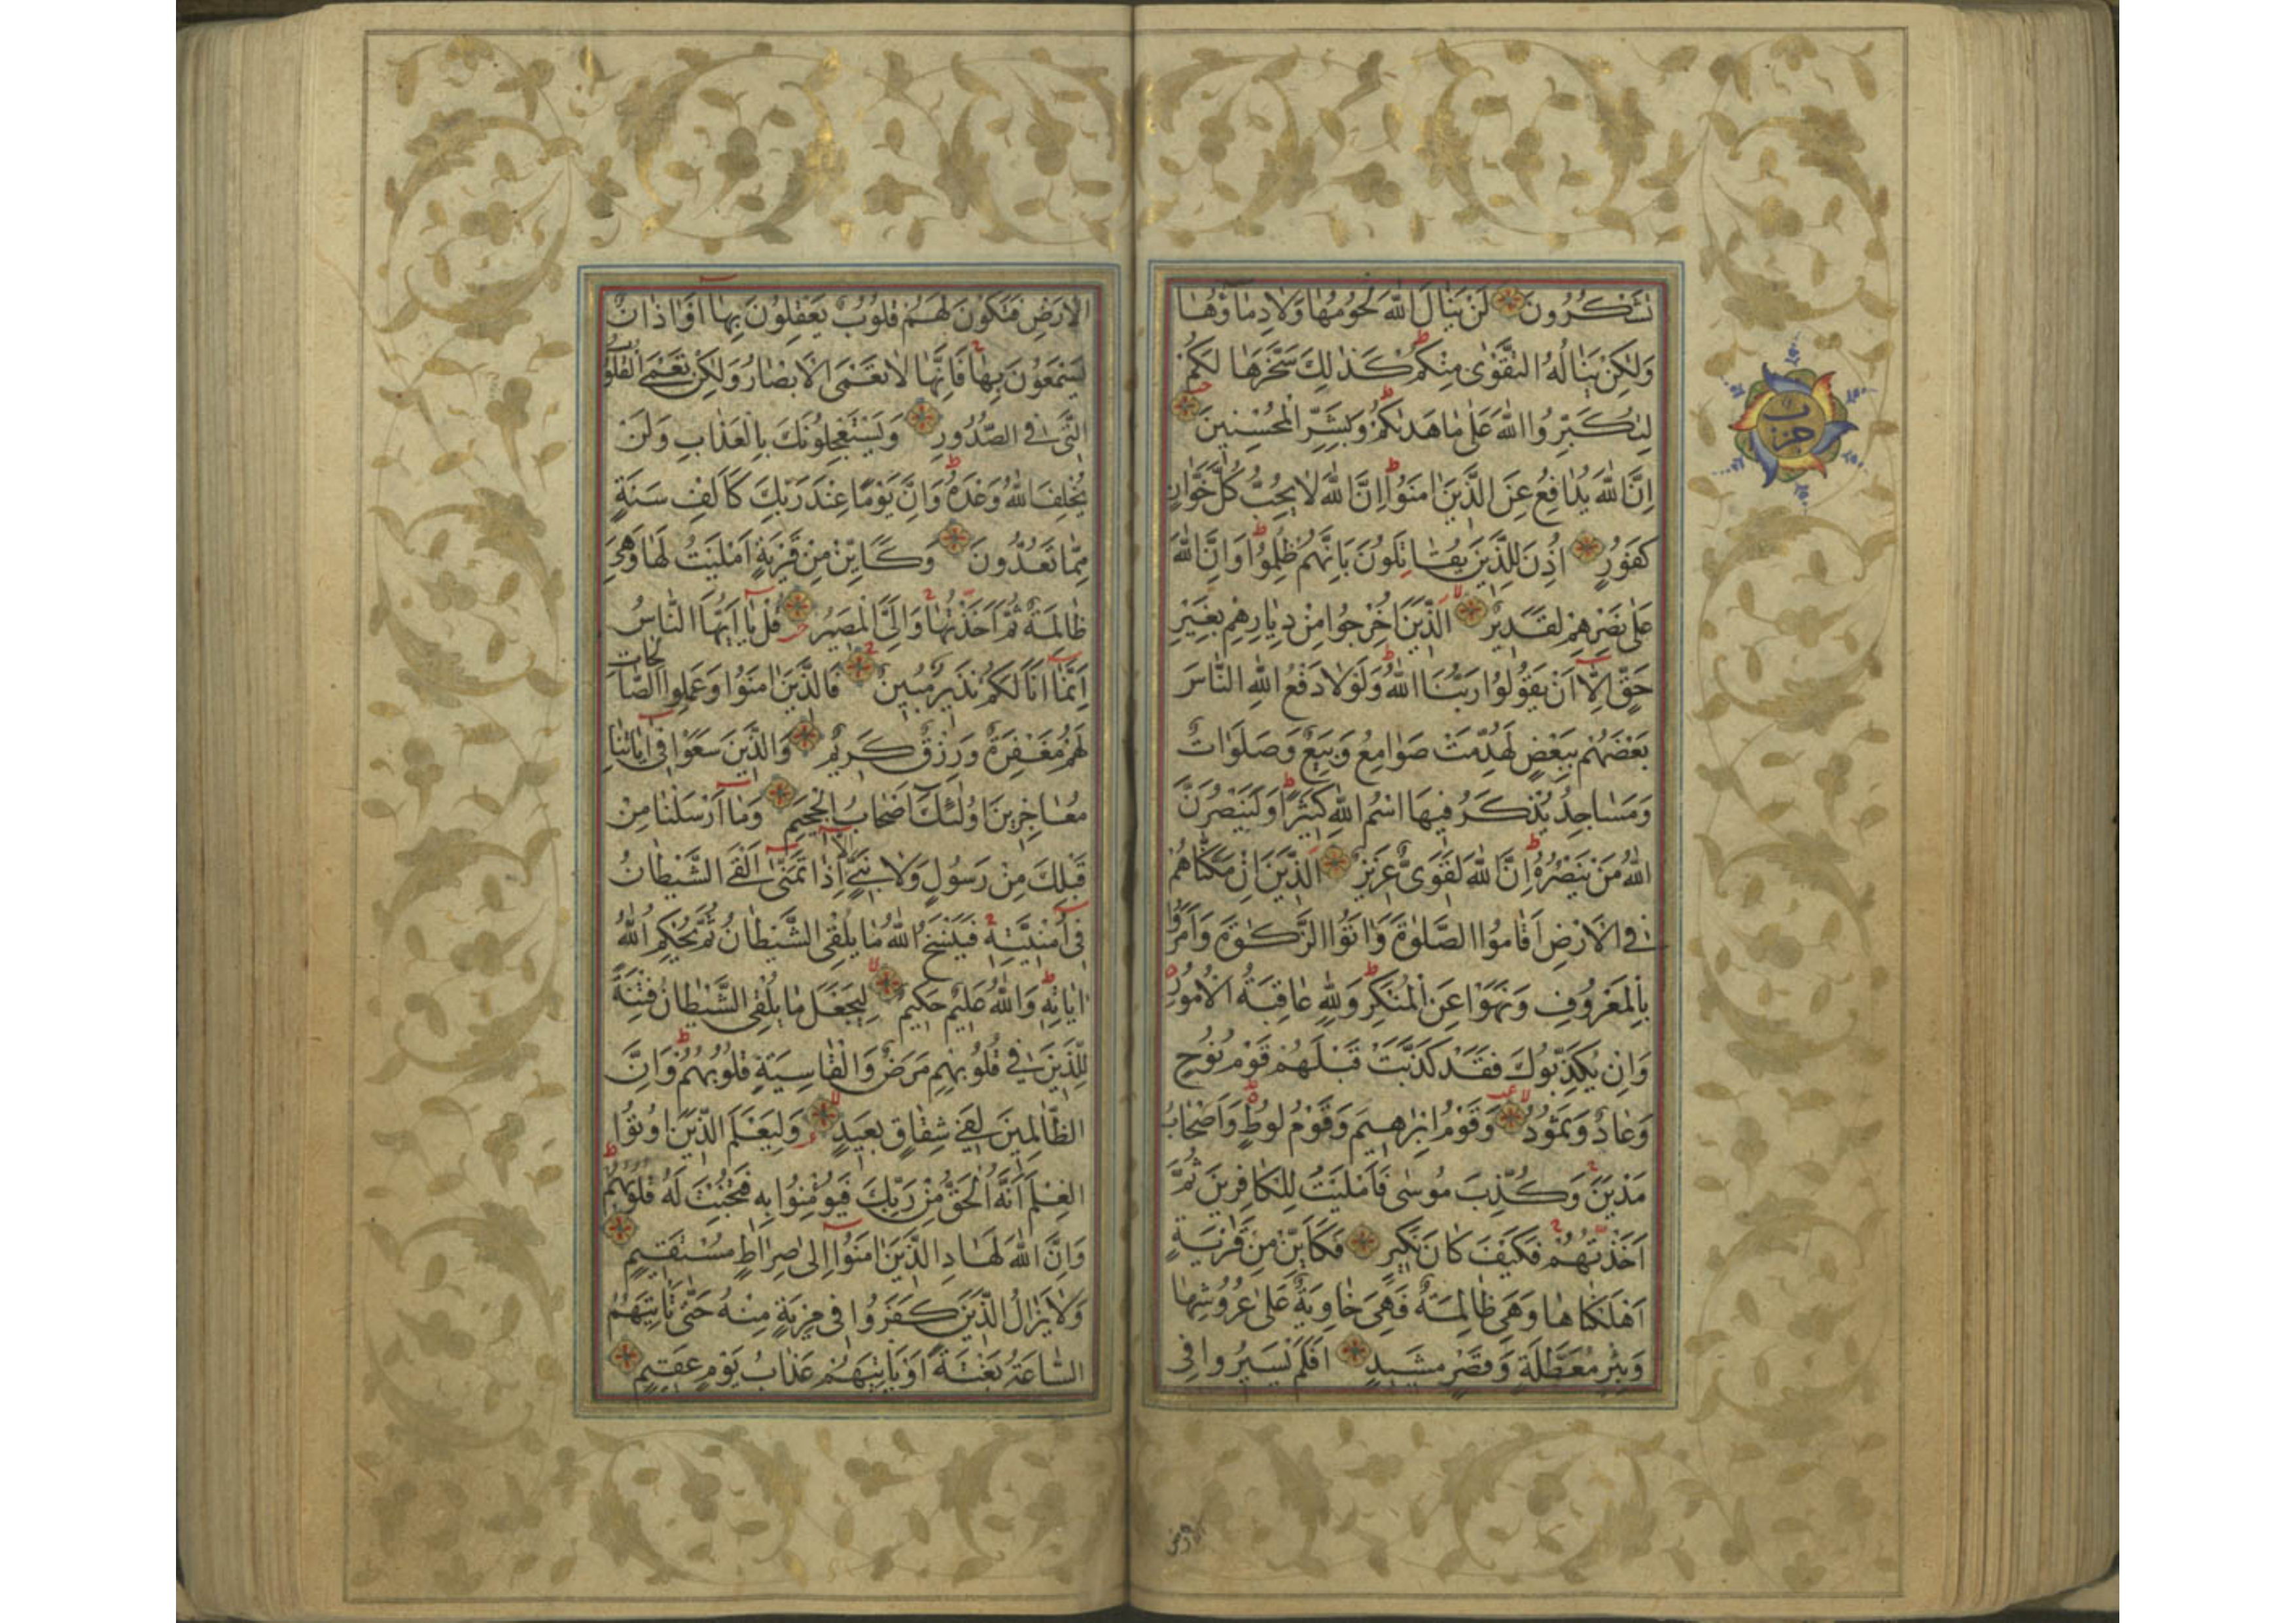 تَشْكُرُونَ لَنْ يَنَالَ اللّٰهَ لُحُومُهَا وَلَا دِمَاؤُهَا
وَلٰكِنْ يَنَالُهُ التَّقْوٰى مِنْكُمْ ط كَذٰلِكَ سَخَّرَهَا لَكُمْ
لِتُكَبِّرُوا اللّٰهَ عَلٰى مَا هَدٰيكُمْ ط وَبَشِّرِ الْمُحْسِنِينَ
حزب
اِنَّ اللّٰهَ يُدَافِعُ عَنِ الَّذِينَ اٰمَنُوا ط اِنَّ اللّٰهَ لَا يُحِبُّ كُلَّ خَوَّانٍ
كَفُورٍ اُذِنَ لِلَّذِينَ يُقَاتَلُونَ بِاَنَّهُمْ ظُلِمُوا ط وَاِنَّ اللّٰهَ
عَلٰى نَصْرِهِمْ لَقَدِيرٌ لا الَّذِينَ اُخْرِجُوا مِنْ دِيَارِهِمْ بِغَيْرِ
حَقٍّ اِلَّا اَنْ يَقُولُوا رَبُّنَا اللّٰهُ ط وَلَوْلَا دَفْعُ اللّٰهِ النَّاسَ
بَعْضَهُمْ بِبَعْضٍ لَهُدِّمَتْ صَوَامِعُ وَبِيَعٌ وَصَلَوَاتٌ
وَمَسَاجِدُ يُذْكَرُ فِيهَا اسْمُ اللّٰهِ كَثِيرًا ط وَلَيَنْصُرَنَّ
اللّٰهُ مَنْ يَنْصُرُهُ ط اِنَّ اللّٰهَ لَقَوِىٌّ عَزِيزٌ الَّذِينَ اِنْ مَكَّنَّاهُمْ
فِى الْاَرْضِ اَقَامُوا الصَّلٰوةَ وَاٰتَوُا الزَّكٰوةَ وَاَمَرُوا
بِالْمَعْرُوفِ وَنَهَوْا عَنِ الْمُنْكَرِ ط وَلِلّٰهِ عَاقِبَةُ الْاُمُورِ
وَاِنْ يُكَذِّبُوكَ فَقَدْ كَذَّبَتْ قَبْلَهُمْ قَوْمُ نُوحٍ
وَعَادٌ وَثَمُودُ لا وَقَوْمُ اِبْرٰهِيمَ وَقَوْمُ لُوطٍ وَاَصْحَابُ
مَدْيَنَ وَكُذِّبَ مُوسٰى فَاَمْلَيْتُ لِلْكَافِرِينَ ثُمَّ
اَخَذْتُهُمْ فَكَيْفَ كَانَ نَكِيرِ فَكَاَيِّنْ مِنْ قَرْيَةٍ
اَهْلَكْنَاهَا وَهِىَ ظَالِمَةٌ فَهِىَ خَاوِيَةٌ عَلٰى عُرُوشِهَا
وَبِئْرٍ مُعَطَّلَةٍ وَقَصْرٍ مَشِيدٍ اَفَلَمْ يَسِيرُوا فِى
الارض
الْاَرْضِ فَتَكُونَ لَهُمْ قُلُوبٌ يَعْقِلُونَ بِهَا اَوْ اٰذَانٌ
يَسْمَعُونَ بِهَا فَاِنَّهَا لَا تَعْمَى الْاَبْصَارُ وَلٰكِنْ تَعْمَى الْقُلُوبُ
الَّتِى فِى الصُّدُورِ وَيَسْتَعْجِلُونَكَ بِالْعَذَابِ وَلَنْ
يُخْلِفَ اللّٰهُ وَعْدَهُ ط وَاِنَّ يَوْمًا عِنْدَ رَبِّكَ كَاَلْفِ سَنَةٍ
مِمَّا تَعُدُّونَ وَكَاَيِّنْ مِنْ قَرْيَةٍ اَمْلَيْتُ لَهَا وَهِىَ
ظَالِمَةٌ ثُمَّ اَخَذْتُهَا وَاِلَىَّ الْمَصِيرُ قُلْ يَا اَيُّهَا النَّاسُ
اِنَّمَا اَنَا لَكُمْ نَذِيرٌ مُبِينٌ فَالَّذِينَ اٰمَنُوا وَعَمِلُوا الصَّالِحَاتِ
لَهُمْ مَغْفِرَةٌ وَرِزْقٌ كَرِيمٌ وَالَّذِينَ سَعَوْا فِى اٰيَاتِنَا
مُعَاجِزِينَ اُولٰئِكَ اَصْحَابُ الْجَحِيمِ وَمَا اَرْسَلْنَا مِنْ
قَبْلِكَ مِنْ رَسُولٍ وَلَا نَبِىٍّ اِلَّا اِذَا تَمَنّٰى اَلْقَى الشَّيْطَانُ
فِى اُمْنِيَّتِهِ فَيَنْسَخُ اللّٰهُ مَا يُلْقِى الشَّيْطَانُ ثُمَّ يُحْكِمُ اللّٰهُ
اٰيَاتِهِ ط وَاللّٰهُ عَلِيمٌ حَكِيمٌ لا لِيَجْعَلَ مَا يُلْقِى الشَّيْطَانُ فِتْنَةً
لِلَّذِينَ فِى قُلُوبِهِمْ مَرَضٌ وَالْقَاسِيَةِ قُلُوبُهُمْ ط وَاِنَّ
الظَّالِمِينَ لَفِى شِقَاقٍ بَعِيدٍ لا وَلِيَعْلَمَ الَّذِينَ اُوتُوا
الْعِلْمَ اَنَّهُ الْحَقُّ مِنْ رَبِّكَ فَيُؤْمِنُوا بِهِ فَتُخْبِتَ لَهُ قُلُوبُهُمْ ط
وَاِنَّ اللّٰهَ لَهَادِ الَّذِينَ اٰمَنُوا اِلٰى صِرَاطٍ مُسْتَقِيمٍ
وَلَا يَزَالُ الَّذِينَ كَفَرُوا فِى مِرْيَةٍ مِنْهُ حَتّٰى تَاْتِيَهُمُ
السَّاعَةُ بَغْتَةً اَوْ يَاْتِيَهُمْ عَذَابُ يَوْمٍ عَقِيمٍ